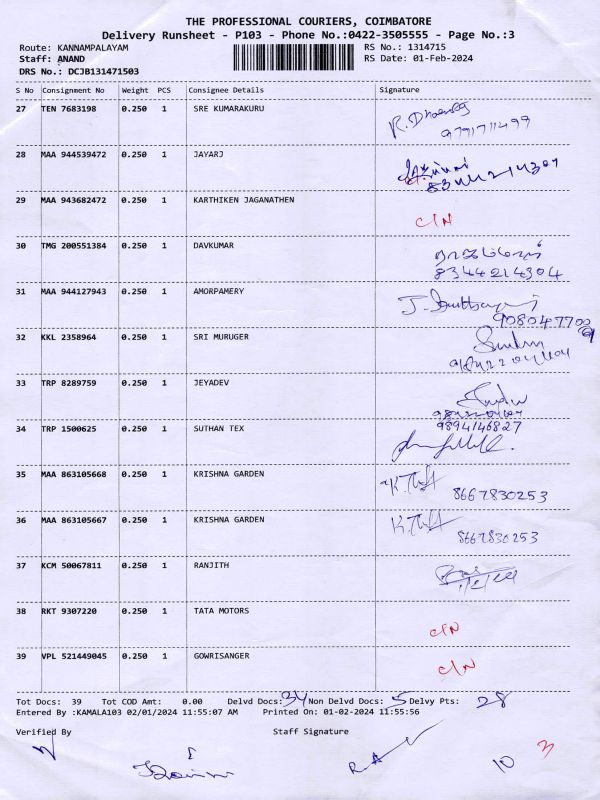 THE PROFESSIONAL COURIERS, COIMBATORE
Delivery Runsheet - P103 - Phone No.:0422-3505555 - Page No.:3
Route: KANNAMPALAYAM RS No.: 1314715
Staff: ANAND RS Date: 01-Feb-2024
DRS No.: DCJB131471503
S No Consignment No Weight PCS Consignee Details Signature
27 TEN 7683198 0.250 1 SRE KUMARAKURU
9791711499
28 MAA 944539472 0.250 1 JAYARJ
29 MAA 943682472 0.250 1 KARTHIKEN JAGANATHEN
C/N
30 TMG 200551384 0.250 1 DAVKUMAR
8344214304
31 MAA 944127943 0.250 1 AMORPAMERY
32 KKL 2358964 0.250 1 SRI MURUGER
33 TRP 8289759 0.250 1 JEYADEV
34 TRP 1500625 0.250 1 SUTHAN TEX 9894146827
35 MAA 863105668 0.250 1 KRISHNA GARDEN
8667830253
36 MAA 863105667 0.250 1 KRISHNA GARDEN
8667830253
37 KCM 50067811 0.250 1 RANJITH
38 RKT 9307220 0.250 1 TATA MOTORS
C/N
39 VPL 521449045 0.250 1 GOWRISANGER
C/N
Tot Docs: 39 Tot COD Amt: 0.00 Delvd Docs: 34 Non Delvd Docs: 5 Delvy Pts: 28
Entered By :KAMALA103 02/01/2024 11:55:07 AM Printed On: 01-02-2024 11:55:56
Verified By Staff Signature
10 3